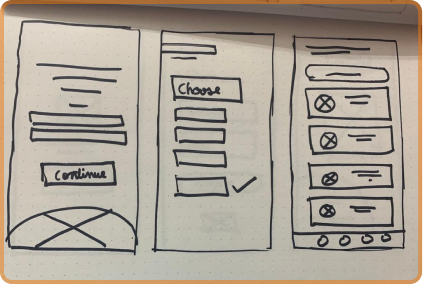 Continue
Choose